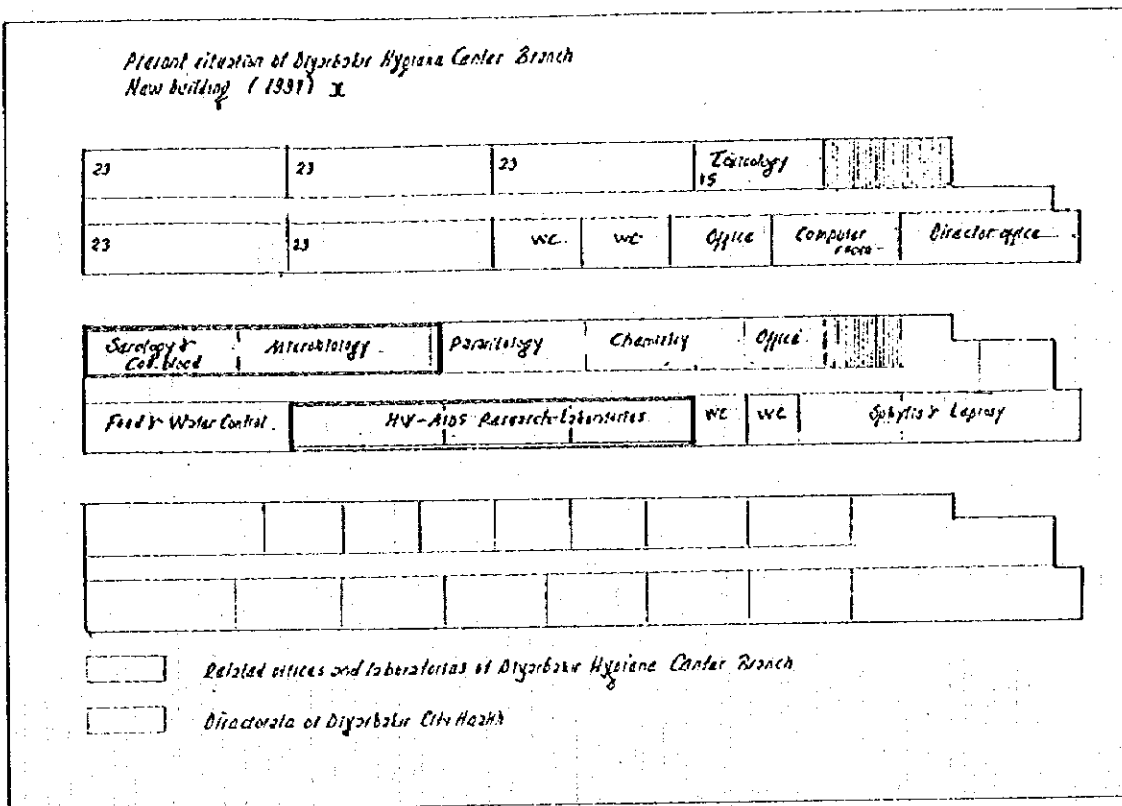 Present situation of Diyarbakır Hygiene Center Branch
New building (1991) x
23 23 23 Toxicology
15
23 23 WC. WC Office Computer room Director office
Serology & Microbiology Parasitology Chemistry Office
Col. blood
Food & Water Control HIV-AIDS Research-Laboratories WC WC Sphylis & Laprosy
Related offices and laboratories of Diyarbakır Hygiene Center Branch
Directorate of Diyarbakır City Health